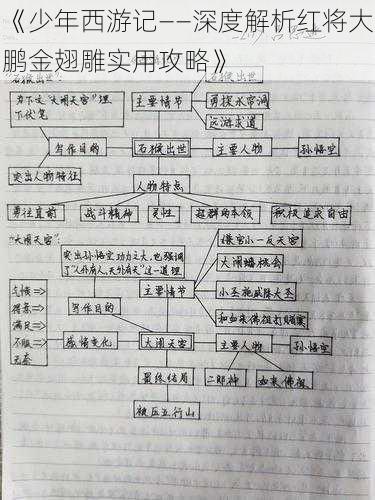 《少年西游记——深度解析红将大
鹏金翅雕实用攻略》
"石猴出世":
为下文"大闹天宫"埋
下伏笔
主要情节
勇探水帘洞
远游求道
写作目的
石猴出世
主要人物
孙悟空
突出人物特征
人物特点
勇往直前
战斗精神
灵性
超群的本领
积极追求自由
"大闹天宫":
突出孙悟空功力之大,也强调
了"人外有人,天外有天"这一道理
嫌官小一反天宫
大闹蟠桃会
主要情节
小圣施威降大圣
和如来佛祖打赌赛
写作目的
满足=>
不服=>
无奈
感情变化
大闹天宫
主要人物
孙悟空
最终结局
二郎神
如来佛祖
被压五行山